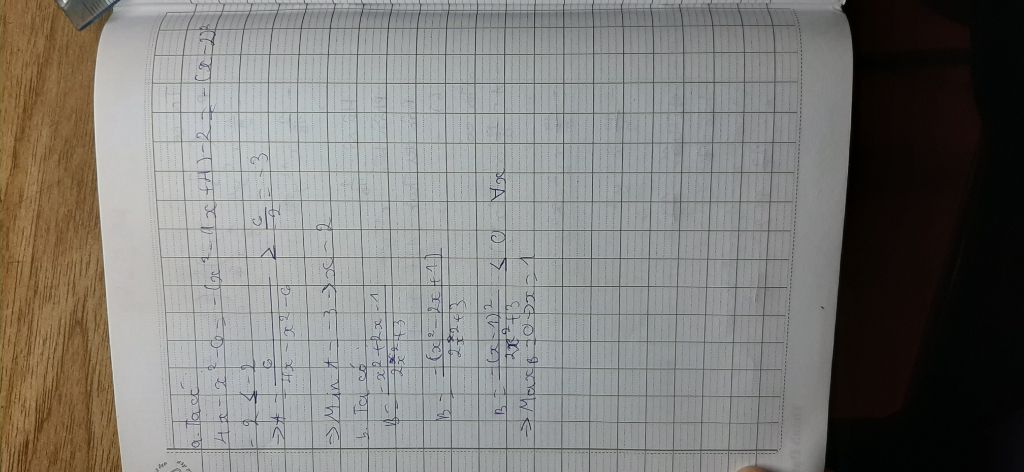 a. Ta có
4x - x² - 6 = -(x² - 4x + 4) - 2 = -(x - 2)²
- 2 ≤ -2
=> A = 6/(4x - x² - 6) ≥ 6/-2 = -3
=> Min A = -3 => x = 2
b. Ta có
B = (-x² + 2x - 1)/(2x² + 3)
B = -(x² - 2x + 1)/(2x² + 3)
B = -(x - 1)²/(2x² + 3) ≤ 0 ∀x
=> Max B = 0 => x = 1